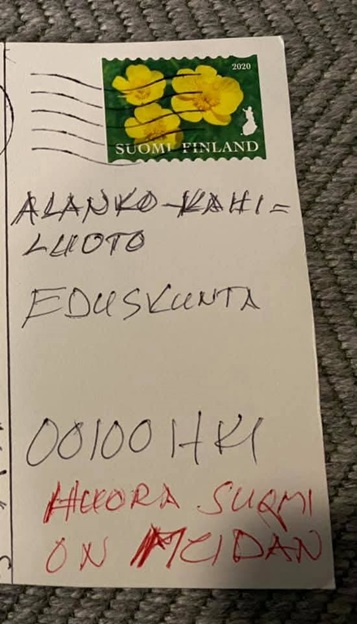 2020
SUOMI FINLAND
ALANKO-KAHI=
LUOTO
EDUSKUNTA
00100 HKI
HUORA SUOMI
ON MEIDÄN